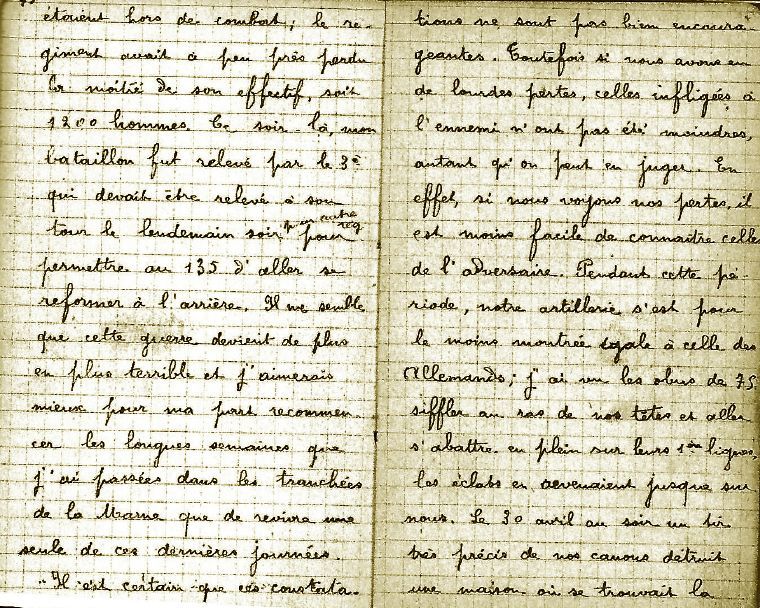 étaient hors de combat ; le ré-
giment avait à peu près perdu
la moitié de son effectif, soit
1200 hommes. Ce soir-là, mon
bataillon fut relevé par le 3e
qui devait être relevé à son
par un autre
rég
tour le lendemain soir pour
permettre au 135 d'aller se
reformer à l'arrière. Il me semble
que cette guerre devient de plus
en plus terrible et j'aimerais
mieux pour ma part recommen-
cer les longues semaines que
j'ai passées dans les tranchées
de la Marne que de revivre une
seule de ces dernières journées.
Il est certain que ces constata-
tions ne sont pas bien encoura-
geantes. Toutefois si nous avons eu
de lourdes pertes, celles infligées à
l'ennemi n'ont pas été moindres,
autant qu'on peut en juger. En
effet, si nous voyons nos pertes, il
est moins facile de connaître celles
de l'adversaire. Pendant cette pé-
riode, notre artillerie s'est pour
le moins montrée égale à celle des
Allemands ; j'ai vu les obus de 75
siffler au ras de nos têtes et aller
s'abattre en plein sur leurs 1ères lignes,
les éclats en revenaient jusque sur
nous. Le 30 avril au soir un tir
très précis de nos canons détruit
une maison où se trouvait la